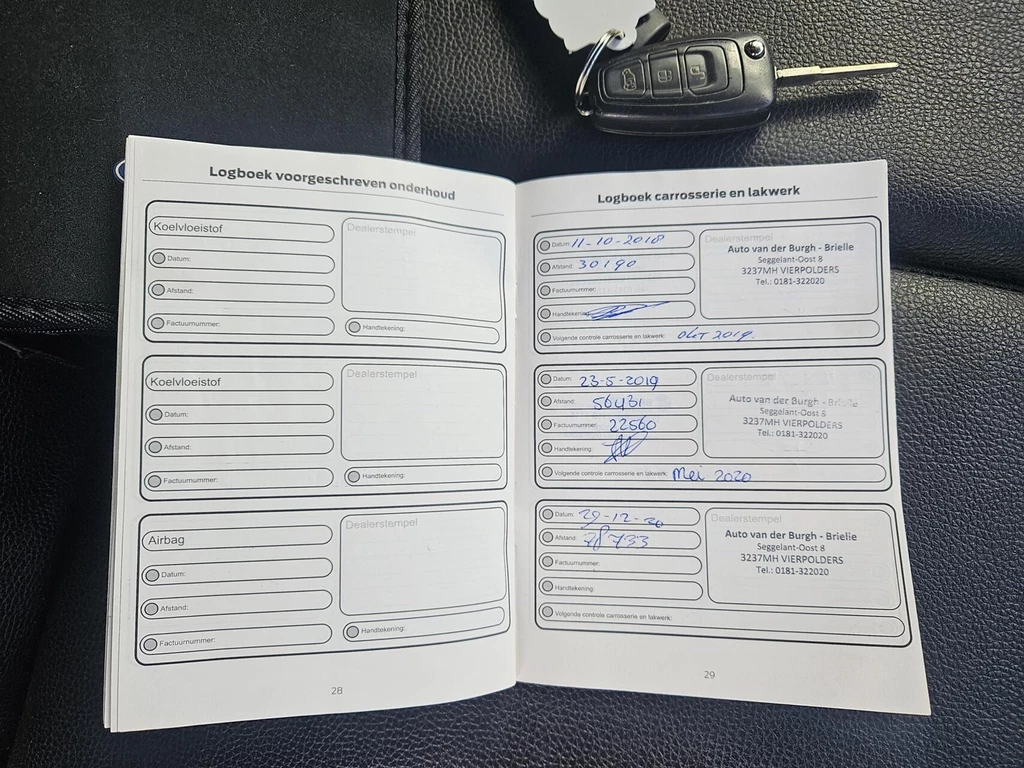 Logboek voorgeschreven onderhoud
Koelvloeistof
Dealerstempel
Datum:
Afstand:
Factuurnummer:
Handtekening:
Koelvloeistof
Dealerstempel
Datum:
Afstand:
Factuurnummer:
Handtekening:
Airbag
Dealerstempel
Datum:
Afstand:
Factuurnummer:
Handtekening:
28
Logboek carrosserie en lakwerk
Datum: 11-10-2018
Afstand: 30190
Factuurnummer:
Handtekening:
Volgende controle carrosserie en lakwerk: Okt 2019
Dealerstempel
Auto van der Burgh - Brielle
Seggelant-Oost 8
3237MH VIERPOLDERS
Tel.: 0181-322020
Datum: 23-5-2019
Afstand: 56431
Factuurnummer: 22560
Handtekening:
Volgende controle carrosserie en lakwerk: Mei 2020
Dealerstempel
Auto van der Burgh - Brielle
Seggelant-Oost 8
3237MH VIERPOLDERS
Tel.: 0181-322020
Datum: 29-12-20
Afstand: 78733
Factuurnummer:
Handtekening:
Volgende controle carrosserie en lakwerk:
Dealerstempel
Auto van der Burgh - Brielle
Seggelant-Oost 8
3237MH VIERPOLDERS
Tel.: 0181-322020
29